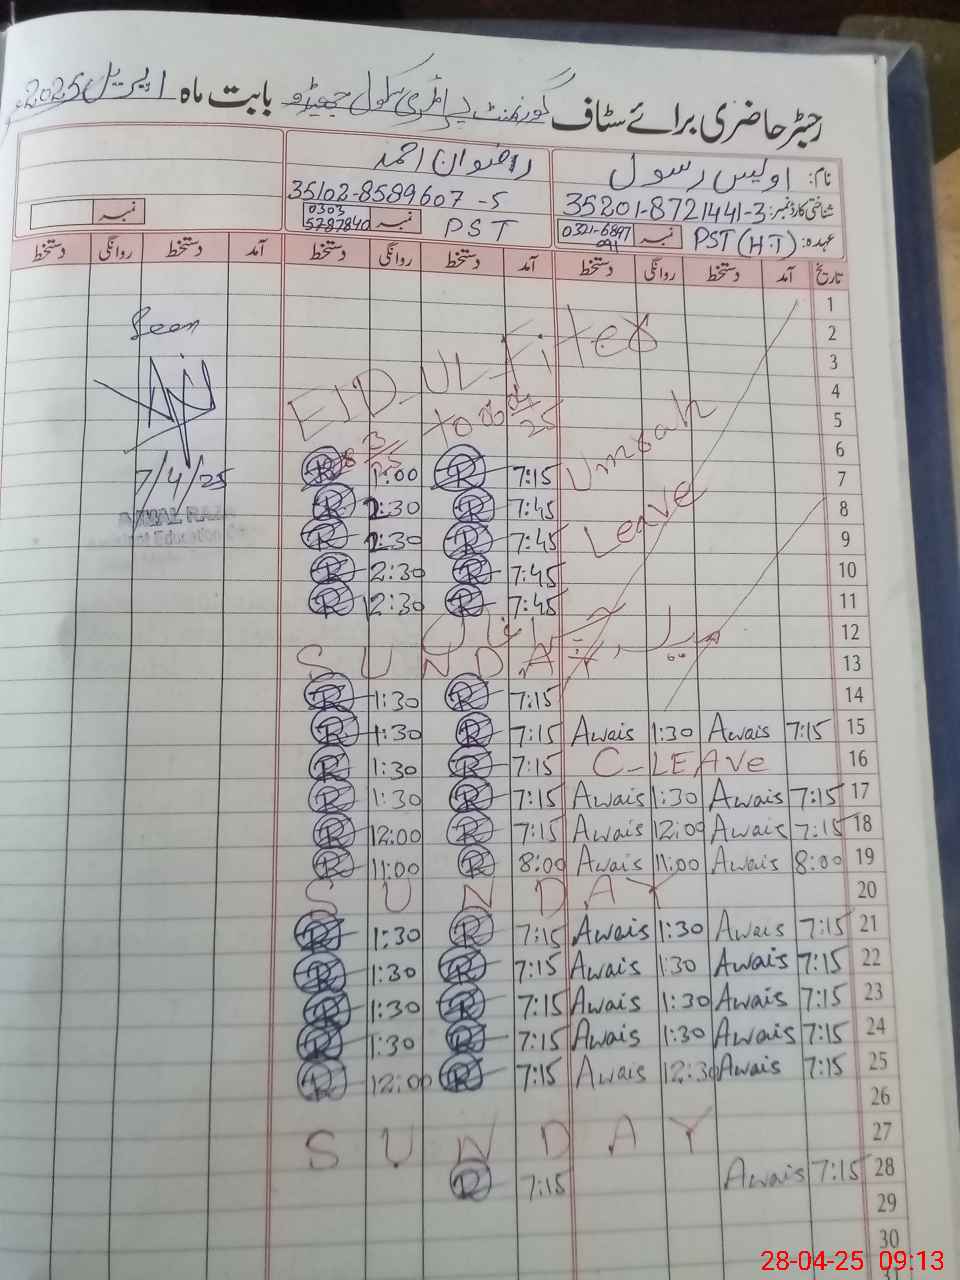 رجسٹر حاضری برائے سٹاف گورنمنٹ پرائمری سکول جھیڈو بابت ماہ اپریل 2025ء
نام: اویس رسول رضوان احمد
شناختی کارڈ نمبر: 35201-8721441-3 35102-8589607-5
عہدہ: PST (H.T) نمبر 0321-6897091 PST نمبر 0303 5787840 نمبر
تاریخ آمد دستخط روانگی دستخط آمد دستخط روانگی دستخط آمد دستخط روانگی دستخط
1
2 Seen
3 EID_UL_Fiter
4
5 to
6 Umrah
7 R 1:00 R 7:15 7/4/25
8 R 2:30 R 7:45 Leave AJMAL RAZA
9 R 2:30 R 7:45
10 R 2:30 R 7:45
11 R 12:30 R 7:45
12
13 SUNDAY
14 R 1:30 R 7:15
15 R 1:30 R 7:15 Awais 1:30 Awais 7:15
16 R 1:30 R 7:15 C-LEAVE
17 R 1:30 R 7:15 Awais 1:30 Awais 7:15
18 R 12:00 R 7:15 Awais 12:00 Awais 7:15
19 R 11:00 R 8:00 Awais 11:00 Awais 8:00
20 SUNDAY
21 R 1:30 R 7:15 Awais 1:30 Awais 7:15
22 R 1:30 R 7:15 Awais 1:30 Awais 7:15
23 R 1:30 R 7:15 Awais 1:30 Awais 7:15
24 R 1:30 R 7:15 Awais 1:30 Awais 7:15
25 R 12:00 R 7:15 Awais 12:30 Awais 7:15
26
27 SUNDAY
28 R 7:15 Awais 7:15
29
30
31
28-04-25 09:13